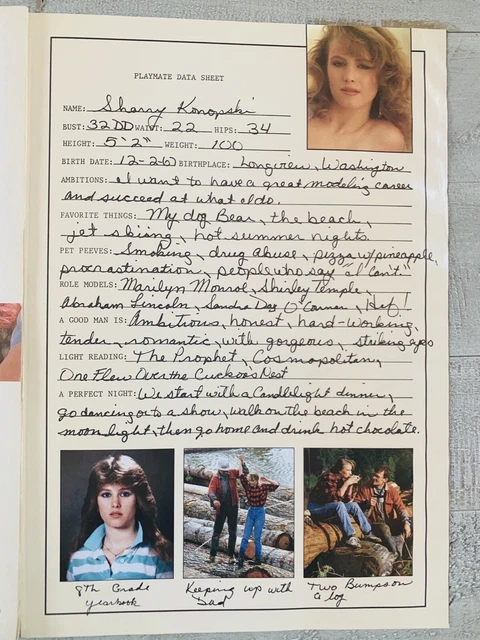 PLAYMATE DATA SHEET
NAME: Sharry Konopski
BUST: 32DD WAIST: 22 HIPS: 34
HEIGHT: 5'2" WEIGHT: 100
BIRTH DATE: 12-26 BIRTHPLACE: Longview, Washington
AMBITIONS: I want to have a great modeling career
and succeed at what I do.
FAVORITE THINGS: My dog Bear, the beach,
jet skiing, hot summer nights
PET PEEVES: Smoking, drug abuse, pizza w/pineapple,
procrastination, people who say "I can't"
ROLE MODELS: Marilyn Monroe, Shirley Temple,
Abraham Lincoln, Sandra Day O'Connor, Hef!
A GOOD MAN IS: Ambitious, honest, hard-working,
tender, romantic, with gorgeous, striking eyes
LIGHT READING: The Prophet, Cosmopolitan,
One Flew Over the Cuckoo's Nest
A PERFECT NIGHT: We start with a Candlelight dinner,
go dancing or to a show, walk on the beach in the
moon light, then go home and drink hot chocolate.
8th Grade
yearbook
Keeping up with
Dad
Two Bumps on
a log